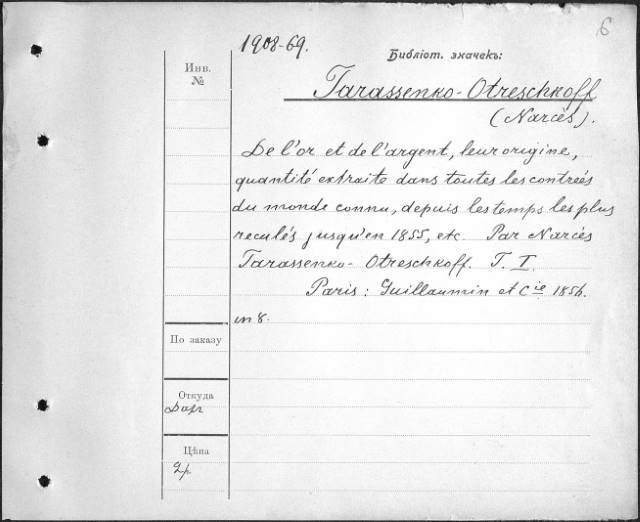 6
1908-69.
Библіот. значекъ:
Инв.
№
Tarassenko-Otreschkoff
(Narcès).
De l'or et de l'argent, leur origine,
quantité extraite dans toutes les contreés
du monde connu, depuis les temps les plus
reculés jusqu'en 1855, etc. Par Narcès
Tarassenko-Otreschkoff. T. I.
Paris: Guillaumin et Cie 1856.
in 8.
По заказу
Откуда
Даръ
Цѣна
2р